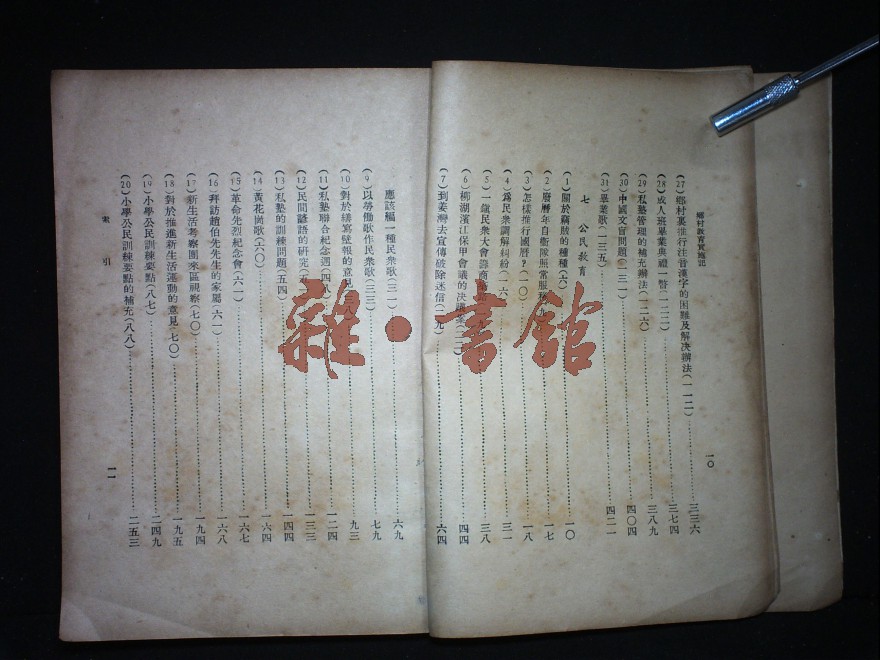 鄉村教育實施記
一〇
(27)鄉村裏推行注音漢字的困難及解決辦法(一一二)…………三三六
(28)成人班畢業典禮一瞥(一二二)…………三七四
(29)私塾管理的補充辦法(一二六)…………三八九
(30)中國文盲問題(一三一)…………四〇四
(31)畢業歌(一三五)…………四二一
七 公民教育
(1)關於竊的種種(六)…………一〇
(2)廢曆年自衛隊照常服務…………一七
(3)怎樣推行國曆?(一〇)…………一八
(4)爲民衆調解糾紛(一六)…………三一
(5)一個民衆大會…………三八
(6)柳湖濱江保甲會議的決議…………四四
(7)到姜灣去宣傳破除迷信(二九)…………六四
應該編一種民衆歌(三一)…………六九
(9)以勞働歌作民衆歌(三三)…………七九
(10)對於繕寫壁報的意見…………九三
(11)私塾聯合紀念週(四八)…………一二四
(12)民間謎語的研究…………一三三
(13)私塾的訓練問題(五四)…………一四四
(14)黃花崗歌(六〇)…………一六四
(15)革命先烈紀念會(六一)…………一六七
(16)拜訪趙伯先先生的家屬(六一)…………一六八
(17)新生活考察團來區視察(七〇)…………一九四
(18)對於推進新生活運動的意見(七〇)…………一九五
(19)小學公民訓練要點(八七)…………二四九
(20)小學公民訓練要點的補充(八八)…………二五三
索引
一一
雜·書館